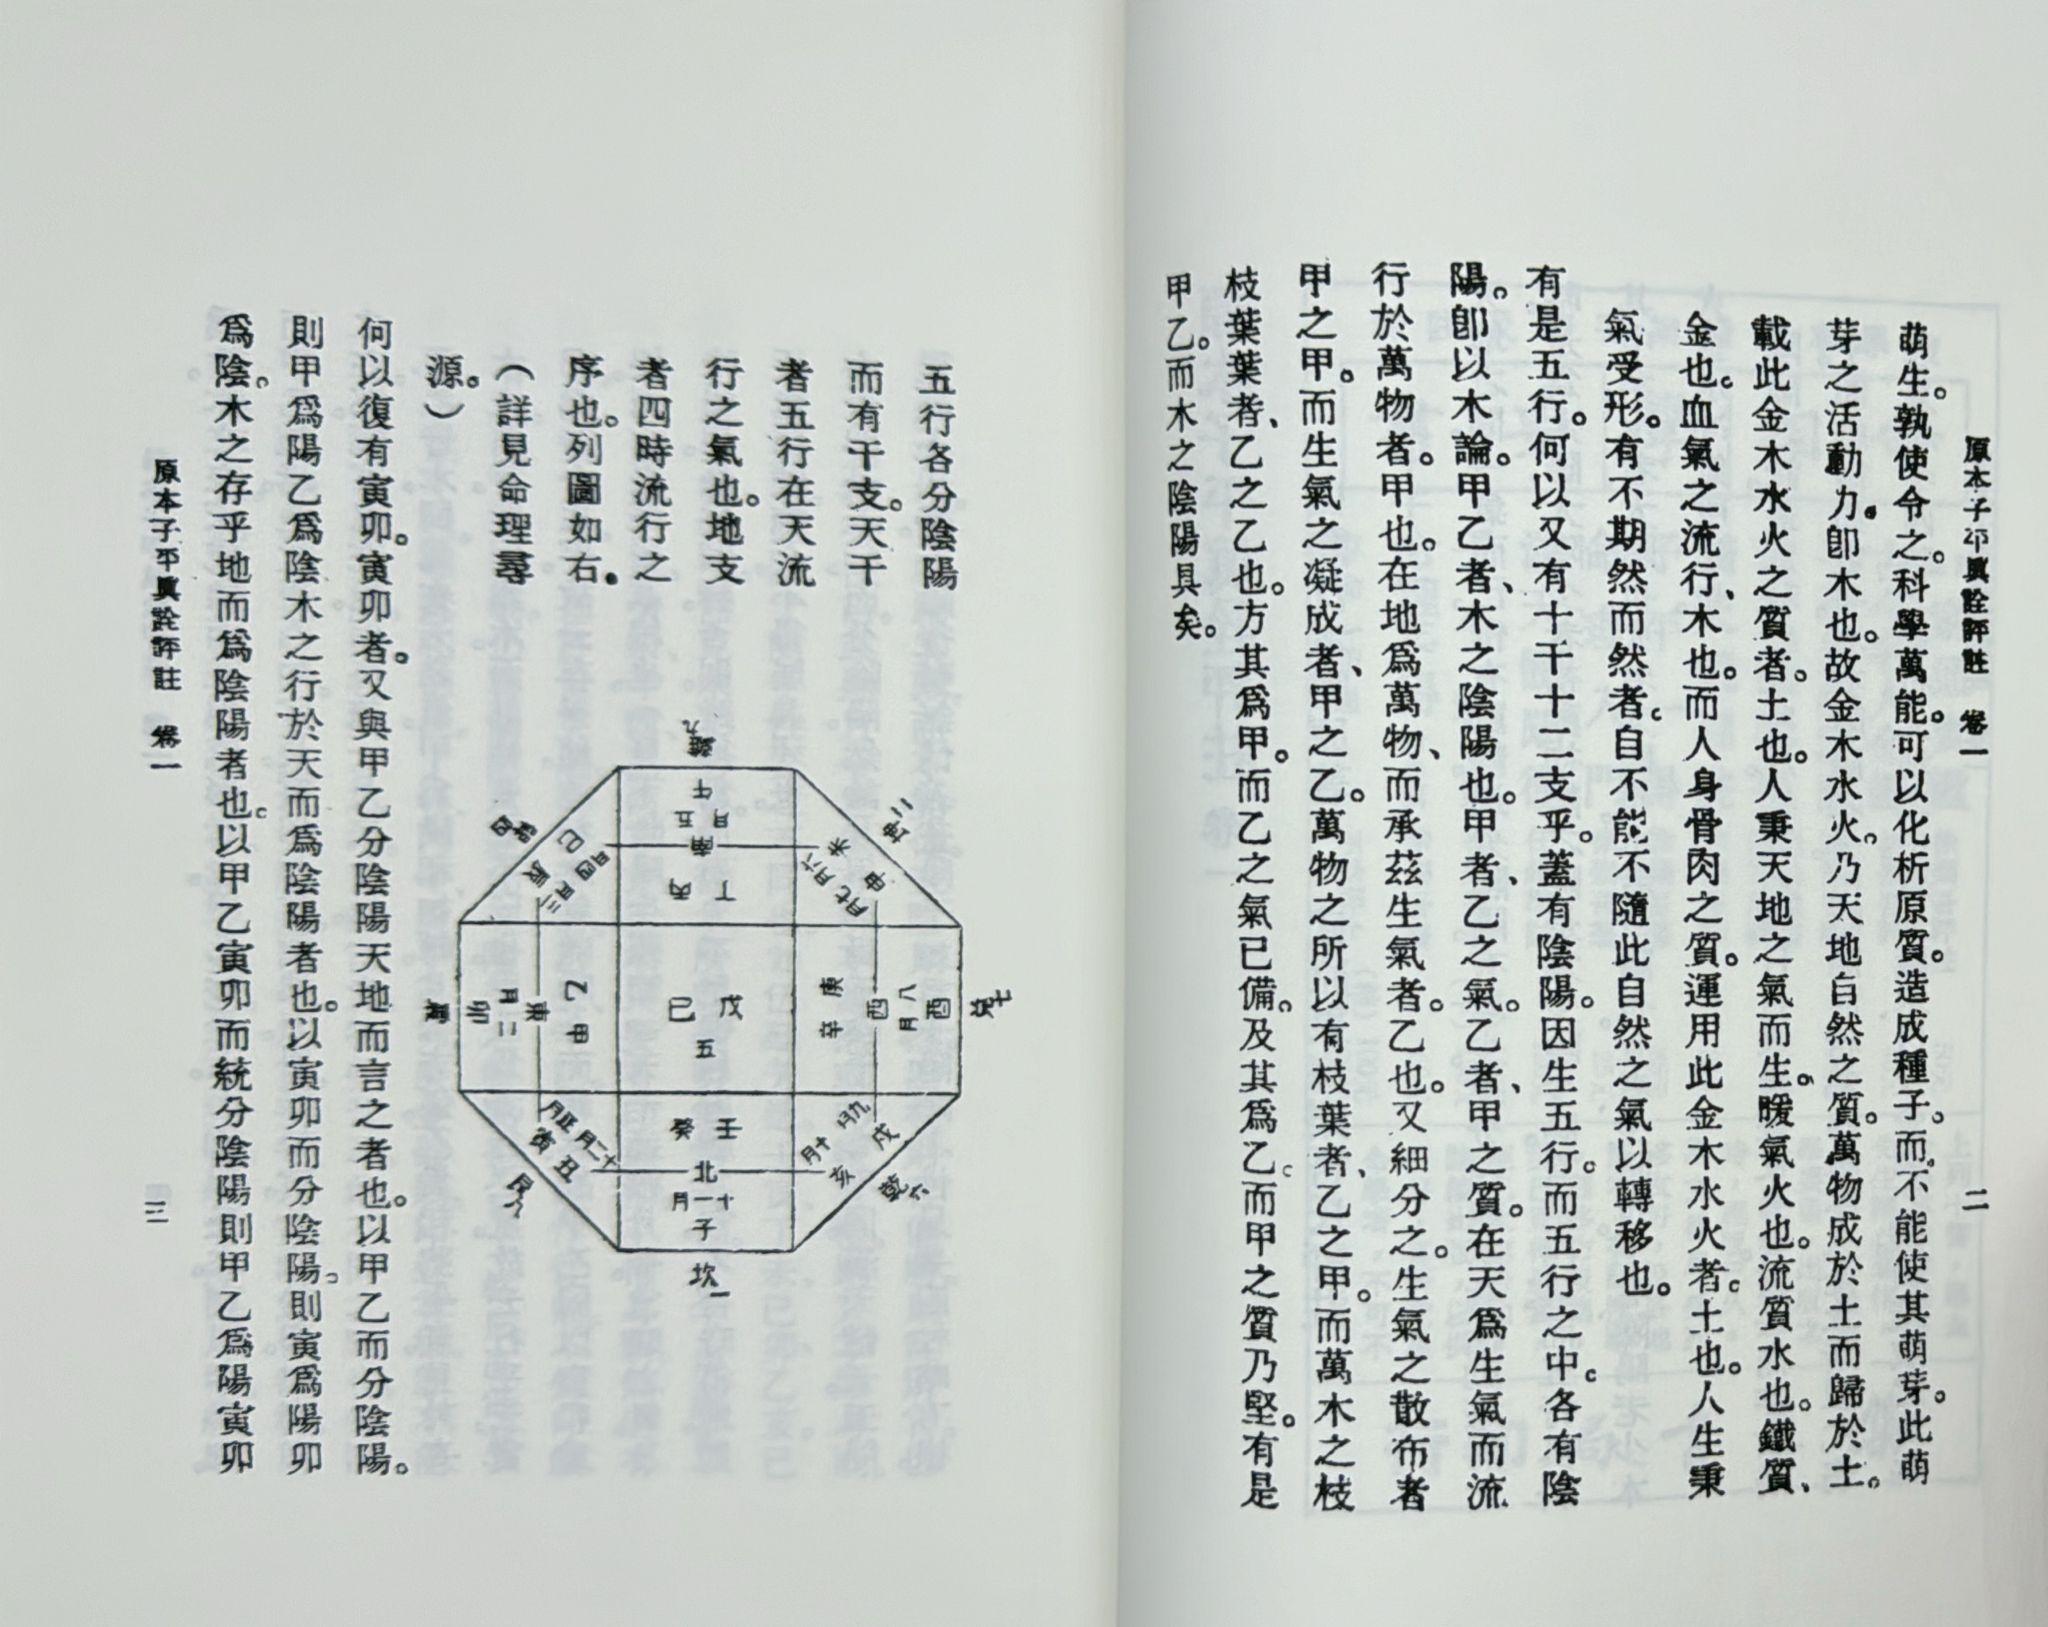 原本子平眞詮評註　卷一
二
萌生。孰使令之。科學萬能。可以化析原質。造成種子。而不能使其萌芽。此萌
芽之活動力。卽木也。故金木水火。乃天地自然之質。萬物成於土而歸於土。
載此金木水火之質者。土也。人秉天地之氣而生。暖氣火也。流質水也。鐵質、
金也。血氣之流行、木也。而人身骨肉之質。運用此金木水火者。土也。人生秉
氣受形。有不期然而然者。自不能不隨此自然之氣以轉移也。
有是五行。何以又有十干十二支乎。蓋有陰陽。因生五行。而五行之中。各有陰
陽。卽以木論。甲乙者、木之陰陽也。甲者、乙之氣。乙者、甲之質。在天爲生氣而流
行於萬物者。甲也。在地爲萬物、而承茲生氣者。乙也。又細分之。生氣之散布者
甲之甲。而生氣之凝成者、甲之乙。萬物之所以有枝葉者、乙之甲。而萬木之枝
枝葉葉者、乙之乙也。方其爲甲。而乙之氣已備。及其爲乙。而甲之質乃堅。有是
甲乙。而木之陰陽具矣。
五行各分陰陽
而有干支。天干
者五行在天流
行之氣也。地支
者四時流行之
序也。列圖如右。
（詳見命理尋
源。）
離九
午
五月
南
丁
丙
坤二
未
六月
申
七月
巳
四月
辰
三月
兌七
酉
八月
西
庚
辛
戊
己
五
乙
甲
東
二月
卯
震
壬
癸
北
十一月
子
坎一
九月
戌
十月
亥
乾六
正月
寅
十二月
丑
艮八
何以復有寅卯。寅卯者。又與甲乙分陰陽天地而言之者也。以甲乙而分陰陽。
則甲爲陽乙爲陰木之行於天而爲陰陽者也。以寅卯而分陰陽。則寅爲陽卯
爲陰。木之存乎地而爲陰陽者也。以甲乙寅卯而統分陰陽則甲乙爲陽寅卯
原本子平眞詮評註　卷一
三